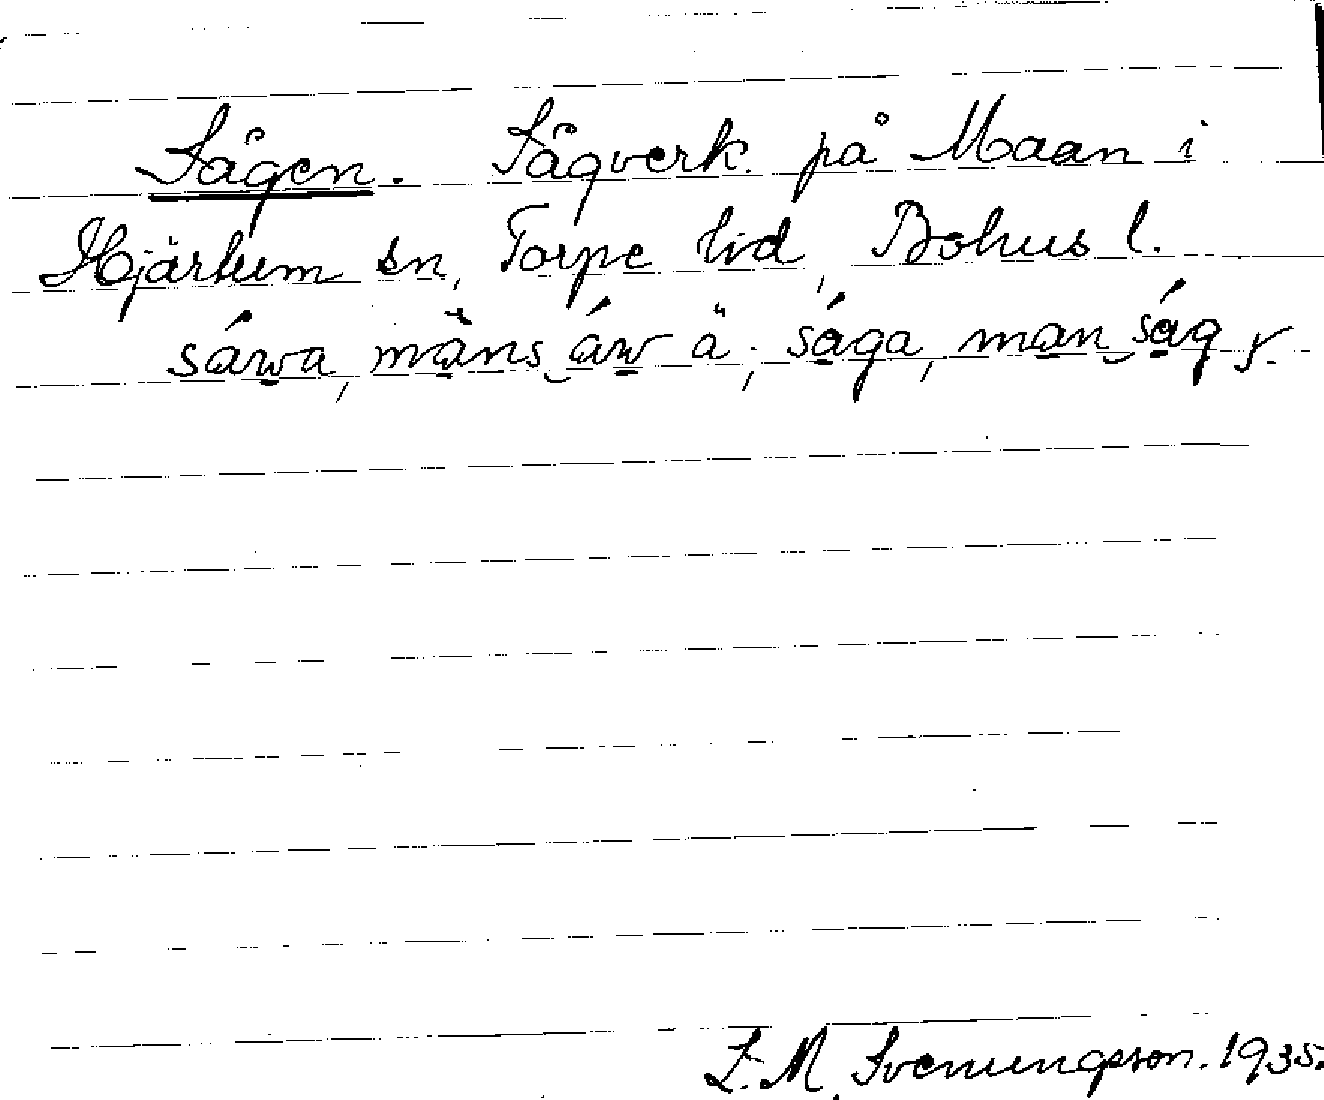 Sågen. Sågverk på Maan i
Hjärtum sn, Torpe hd, Bohus l.
sáwa, màns áw ä; sága, man ság y.
L. M. Svenungsson. 1935.